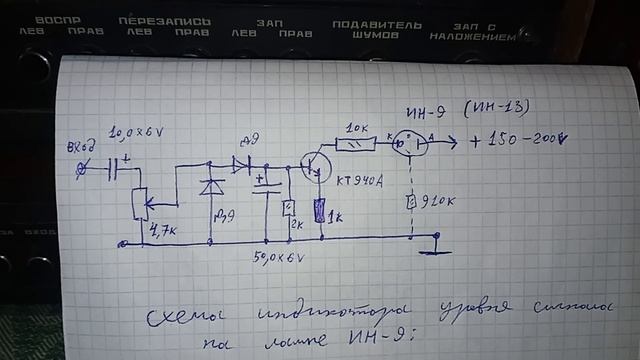 ВОСПР ПЕРЕЗАПИСЬ ЗАП ПОДАВИТЕЛЬ ЗАП С
ЛЕВ ПРАВ ЛЕВ ПРАВ ЛЕВ ПРАВ ШУМОВ НАЛОЖЕНИЕМ
ИН-9 (ИН-13)
10,0х6v
10к
К
А
+150-200v
вход
+
Д9
+
КТ940А
910к
4,7к
Д9
2к
1к
50,0х6v
схема индикатора уровня сигнала
на лампе ИН-9:
ЗА ВХОД